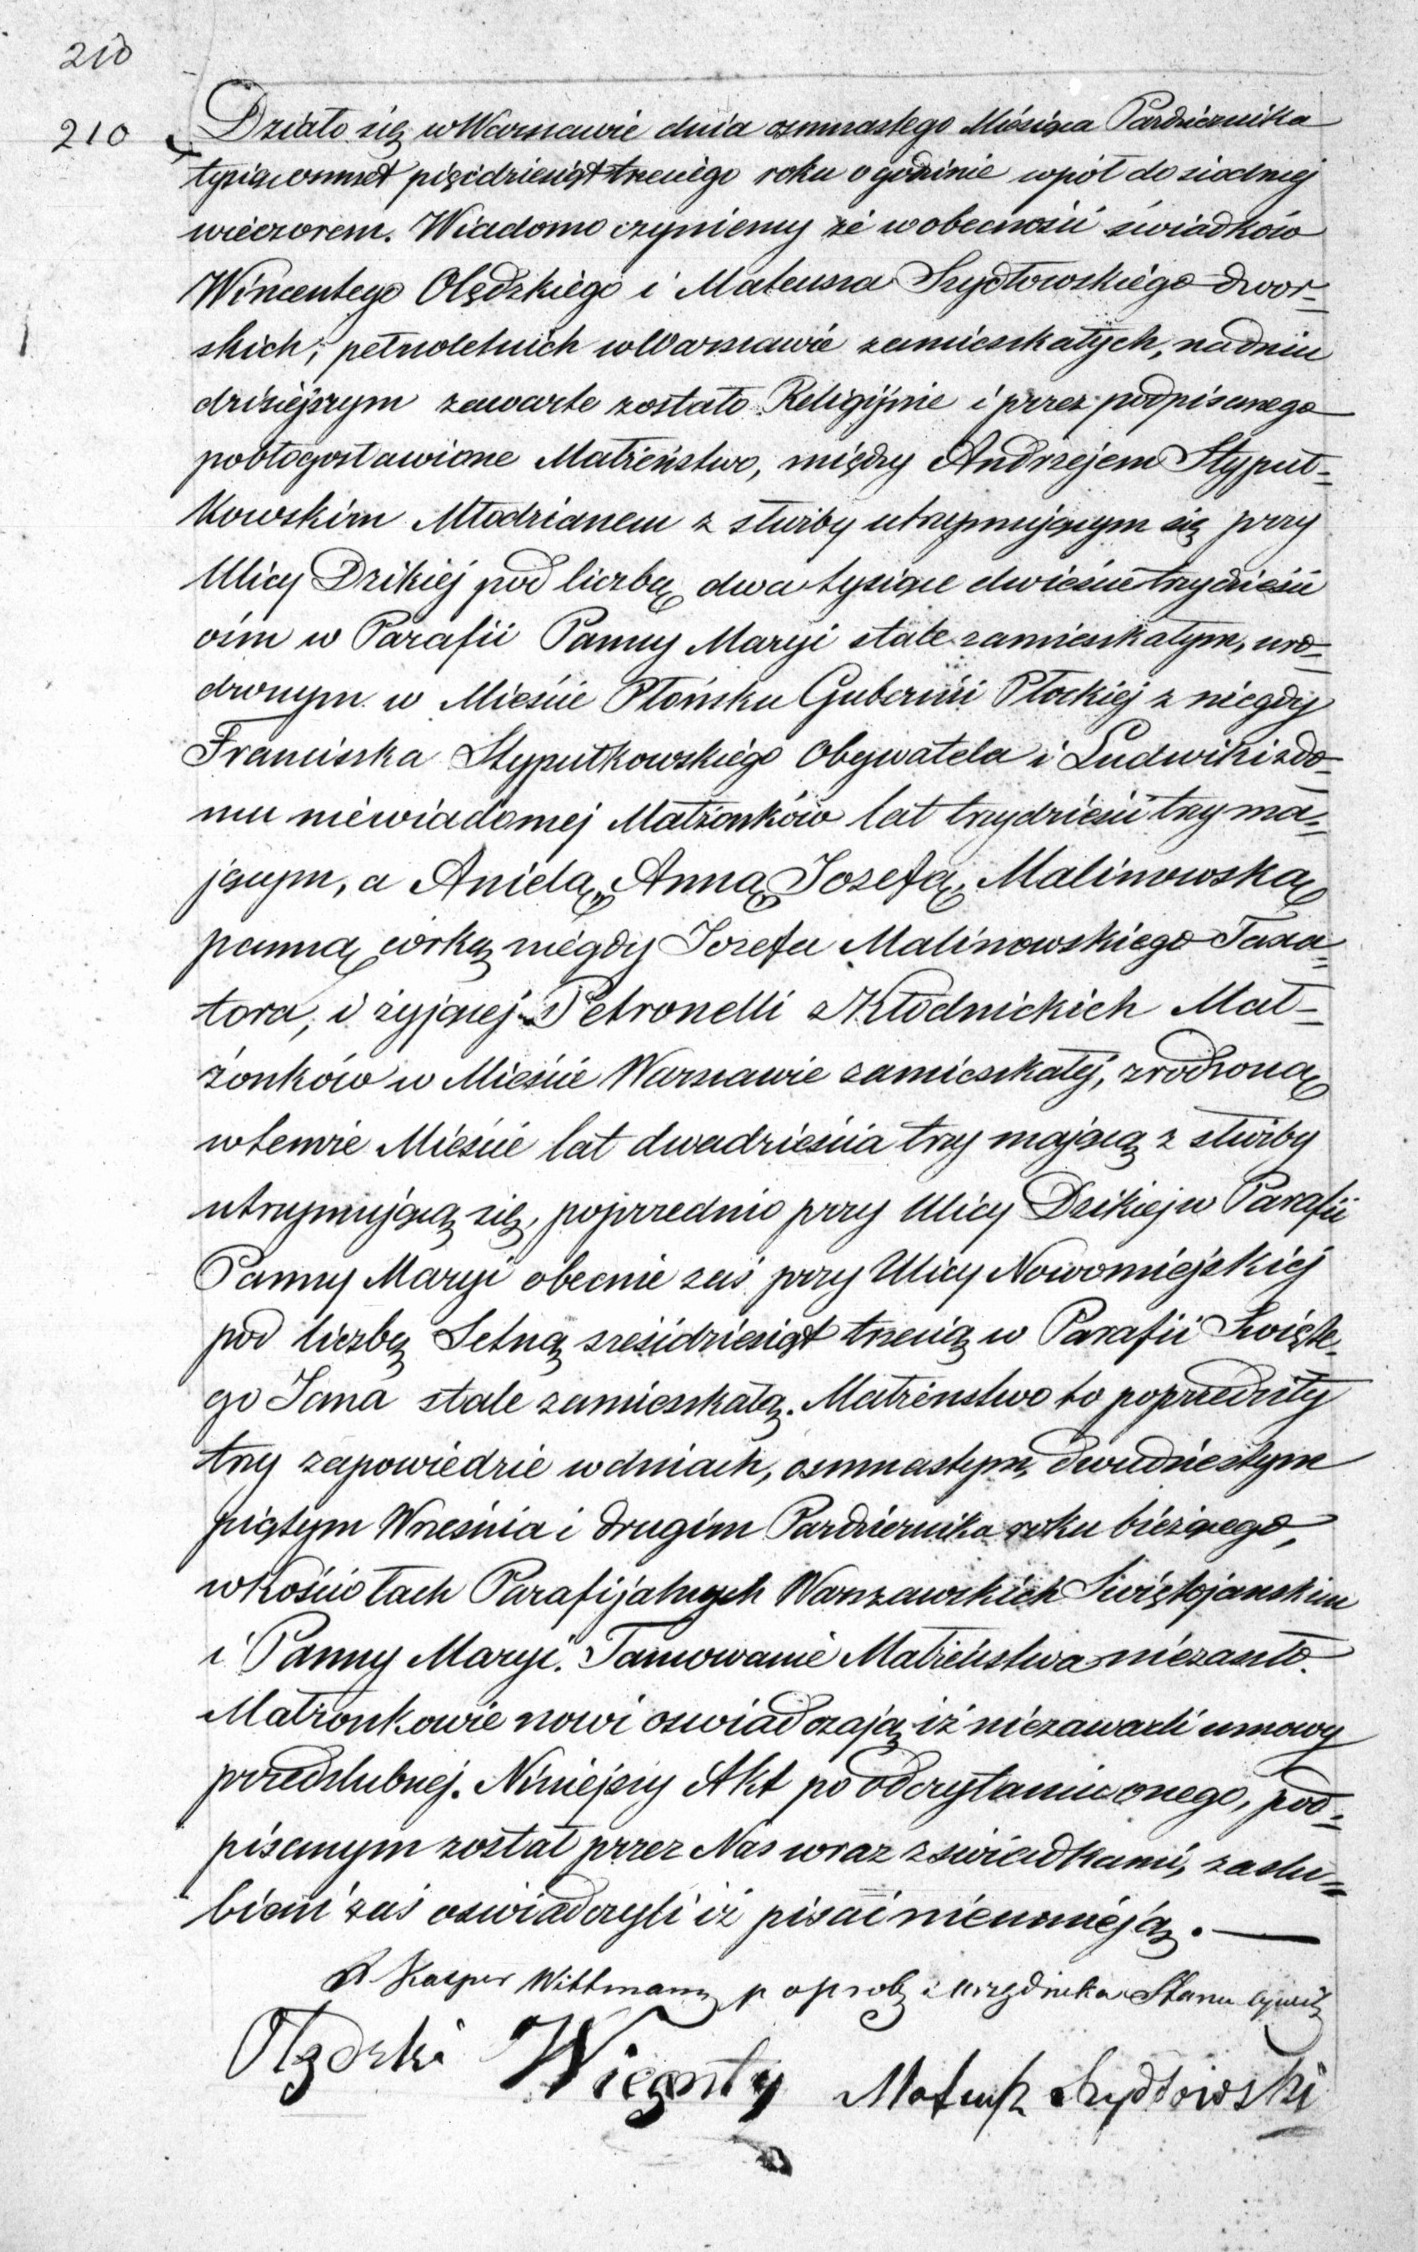 210
210
Działo się w Warszawie dnia osmnastego Miesiąca Pardziernika
tysiąc osmset pięćdziesiąt trzeciego roku o godzinie wpół do siodmej
wieczorem. Wiadomo czyniemy że w obecności świadków
Wincentego Olędzkiego i Mateusza Szydłowskiego dwor=
skich, pełnoletnich w Warszawie zamieszkałych, na dniu
dzisiejszym zawarte zostało Religijnie i przez podpisanego
pobłogosławione Małżeństwo, między Andrzejem Styput=
kowskim Młodzianem z służby utrzymującym się przy
Ulicy Dzikiej pod liczbą dwa tysiące dwieście trzydzieści
ośm w Parafii Panny Maryi stale zamieszkałym, uro=
dzonym w Mieście Płońsku Gubernii Płockiej z niegdy
Franciszka Styputkowskiego Obywatela i Ludwiki z do=
mu niewiadomej Małżonków lat trzydzieści trzy ma=
jącym, a Anielą, Anną Jozefą, Malinowską
panną córką niegdy Jozefa Malinowskiego Taxa=
tora, i żyjącej Petronelli z Kłodnickich Mał=
żonków w Mieście Warszawie zamieszkałej, zrodzoną
w temże Mieście lat dwadzieścia trzy mającą z służby
utrzymującą się, poprzednio przy Ulicy Dzikiej w Parafii
Panny Maryi obecnie zaś przy Ulicy Nowomiejskiej
pod liczbą Setną sześćdziesiąt trzecią w Parafii Święte=
go Jana stale zamieszkałą. Małżeństwo to poprzedziły
trzy zapowiedzie w dniach, osmnastym, dwudziestym
piątym Września i drugim Pardziernika roku bieżącego,
w kościołach Parafijalnych Warszawskich Świętojanskim
i Panny Maryi. Tamowanie Małżeństwa niezaszło.
Małżonkowie nowi oswiadczają iż niezawarli umowy
przedslubnej. Niniejszy Akt po odczytaniu onego, pod=
pisanym został przez Nas wraz z swiadkami, zaslu=
bieni zaś oswiadczyli iż pisać nieumieją.
X Kasper Wittmann p o prob i urzędnika Stanu Cywil
Olędzki Wicenty Mateusz Szydłowski